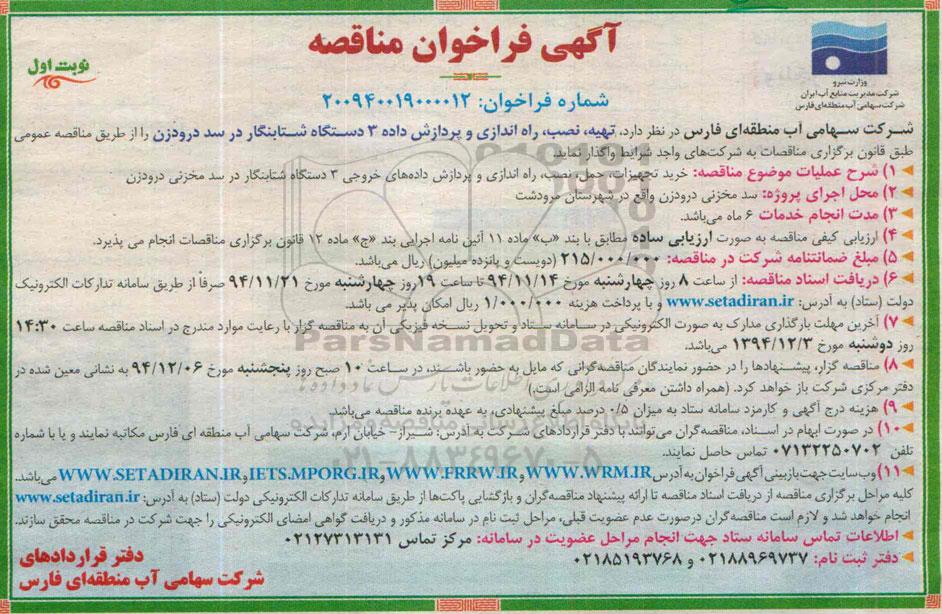 آگهی فراخوان مناقصه
نوبت اول
وزارت نیرو
شرکت مدیریت منابع آب ایران
شرکت سهامی آب منطقه‌ای فارس
شماره فراخوان: ۲۰۰۹۴۰۰۱۹۰۰۰۰۱۲
شرکت سهامی آب منطقه‌ای فارس در نظر دارد، تهیه، نصب، راه اندازی و پردازش داده ۳ دستگاه شتابنگار در سد درودزن را از طریق مناقصه عمومی
طبق قانون برگزاری مناقصات به شرکت‌های واجد شرایط واگذار نماید.
۱) شرح عملیات موضوع مناقصه: خرید تجهیزات، حمل، نصب، راه اندازی و پردازش داده‌های خروجی ۳ دستگاه شتابنگار در سد مخزنی درودزن
۲) محل اجرای پروژه: سد مخزنی درودزن واقع در شهرستان مرودشت
۳) مدت انجام خدمات ۶ ماه می‌باشد.
۴) ارزیابی کیفی مناقصه به صورت ارزیابی ساده مطابق با بند «ب» ماده ۱۱ آئین نامه اجرایی بند «ج» ماده ۱۲ قانون برگزاری مناقصات انجام می پذیرد.
۵) مبلغ ضمانتنامه شرکت در مناقصه: ۲۱۵/۰۰۰/۰۰۰ (دویست و پانزده میلیون) ریال می‌باشد.
۶) دریافت اسناد مناقصه: از ساعت ۸ روز چهارشنبه مورخ ۹۴/۱۱/۱۴ تا ساعت ۱۹ روز چهارشنبه مورخ ۹۴/۱۱/۲۱ صرفاً از طریق سامانه تدارکات الکترونیک
دولت (ستاد) به آدرس: www.setadiran.ir و با پرداخت هزینه ۱/۰۰۰/۰۰۰ ریال امکان پذیر می باشد.
۷) آخرین مهلت بارگذاری مدارک به صورت الکترونیکی در سامانه ستاد و تحویل نسخه فیزیکی آن به مناقصه گزار با رعایت موارد مندرج در اسناد مناقصه ساعت ۱۴:۳۰
روز دوشنبه مورخ ۱۳۹۴/۱۲/۳ می‌باشد.
۸) مناقصه گزار، پیشنهادها را در حضور نمایندگان مناقصه‌گرانی که مایل به حضور باشند، در ساعت ۱۰ صبح روز پنجشنبه مورخ ۹۴/۱۲/۰۶ به نشانی معین شده در
دفتر مرکزی شرکت باز خواهد کرد. (همراه داشتن معرفی نامه الزامی است.)
۹) هزینه درج آگهی و کارمزد سامانه ستاد به میزان ۰/۵ درصد مبلغ پیشنهادی، به عهده برنده مناقصه می‌باشد.
۱۰) در صورت ابهام در اسناد، مناقصه‌گران می‌توانند با دفتر قراردادهای شرکت به آدرس: شیراز- خیابان ارم، شرکت سهامی آب منطقه ای فارس مکاتبه نمایند و یا با شماره
تلفن ۰۷۱۳۲۲۵۰۷۰۲ تماس حاصل نمایند.
۱۱) وب سایت جهت بازبینی آگهی فراخوان به آدرس WWW.WRM.IR و WWW.FRRW.IR و IETS.MPORG.IR و WWW.SETADIRAN.IR می‌باشد.
کلیه مراحل برگزاری مناقصه از دریافت اسناد مناقصه تا ارائه پیشنهاد مناقصه‌گران و بازگشایی پاکت‌ها از طریق سامانه تدارکات الکترونیکی دولت (ستاد) به آدرس: www.setadiran.ir
انجام خواهد شد و لازم است مناقصه‌گران درصورت عدم عضویت قبلی، مراحل ثبت نام در سامانه مذکور و دریافت گواهی امضای الکترونیکی را جهت شرکت در مناقصه محقق سازند.
اطلاعات تماس سامانه ستاد جهت انجام مراحل عضویت در سامانه: مرکز تماس ۰۲۱۲۷۳۱۳۱۳۱
دفتر ثبت نام: ۰۲۱۸۸۹۶۹۷۳۷ و ۰۲۱۸۵۱۹۳۷۶۸
دفتر قراردادهای
شرکت سهامی آب منطقه‌ای فارس
ParsNamadData
۰۲۱-۸۸۳۴۹۶۷۰-۵